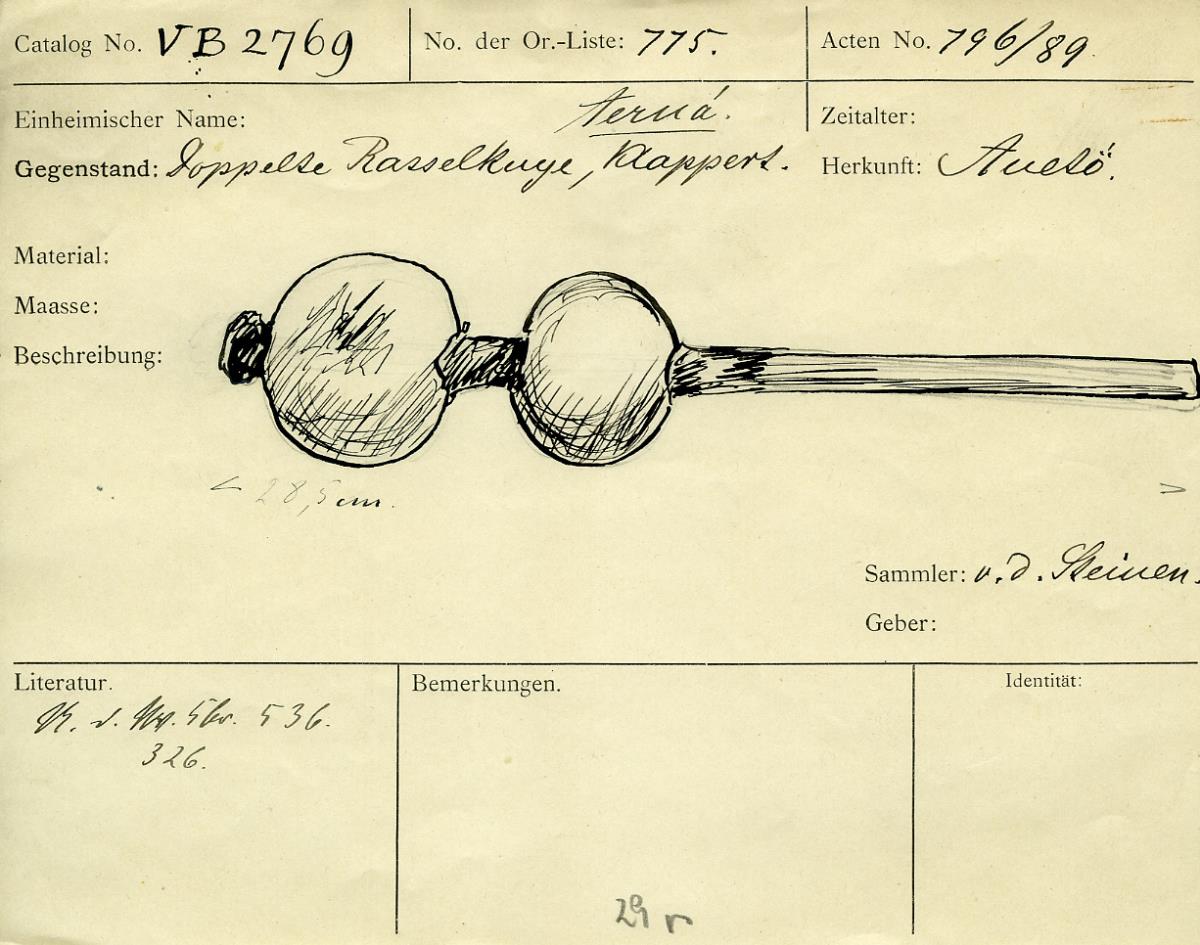 Catalog No. VB 2769
No. der Or.-Liste: 775.
Acten No. 796/89
Einheimischer Name: terná.
Zeitalter:
Gegenstand: Doppelte Rasselkuge, Klappert.
Herkunft: Auetö.
Material:
Maasse:
Beschreibung:
< 28,5 cm. >
Sammler: v. d. Steinen.
Geber:
Literatur.
536.
326.
Bemerkungen.
Identität:
29